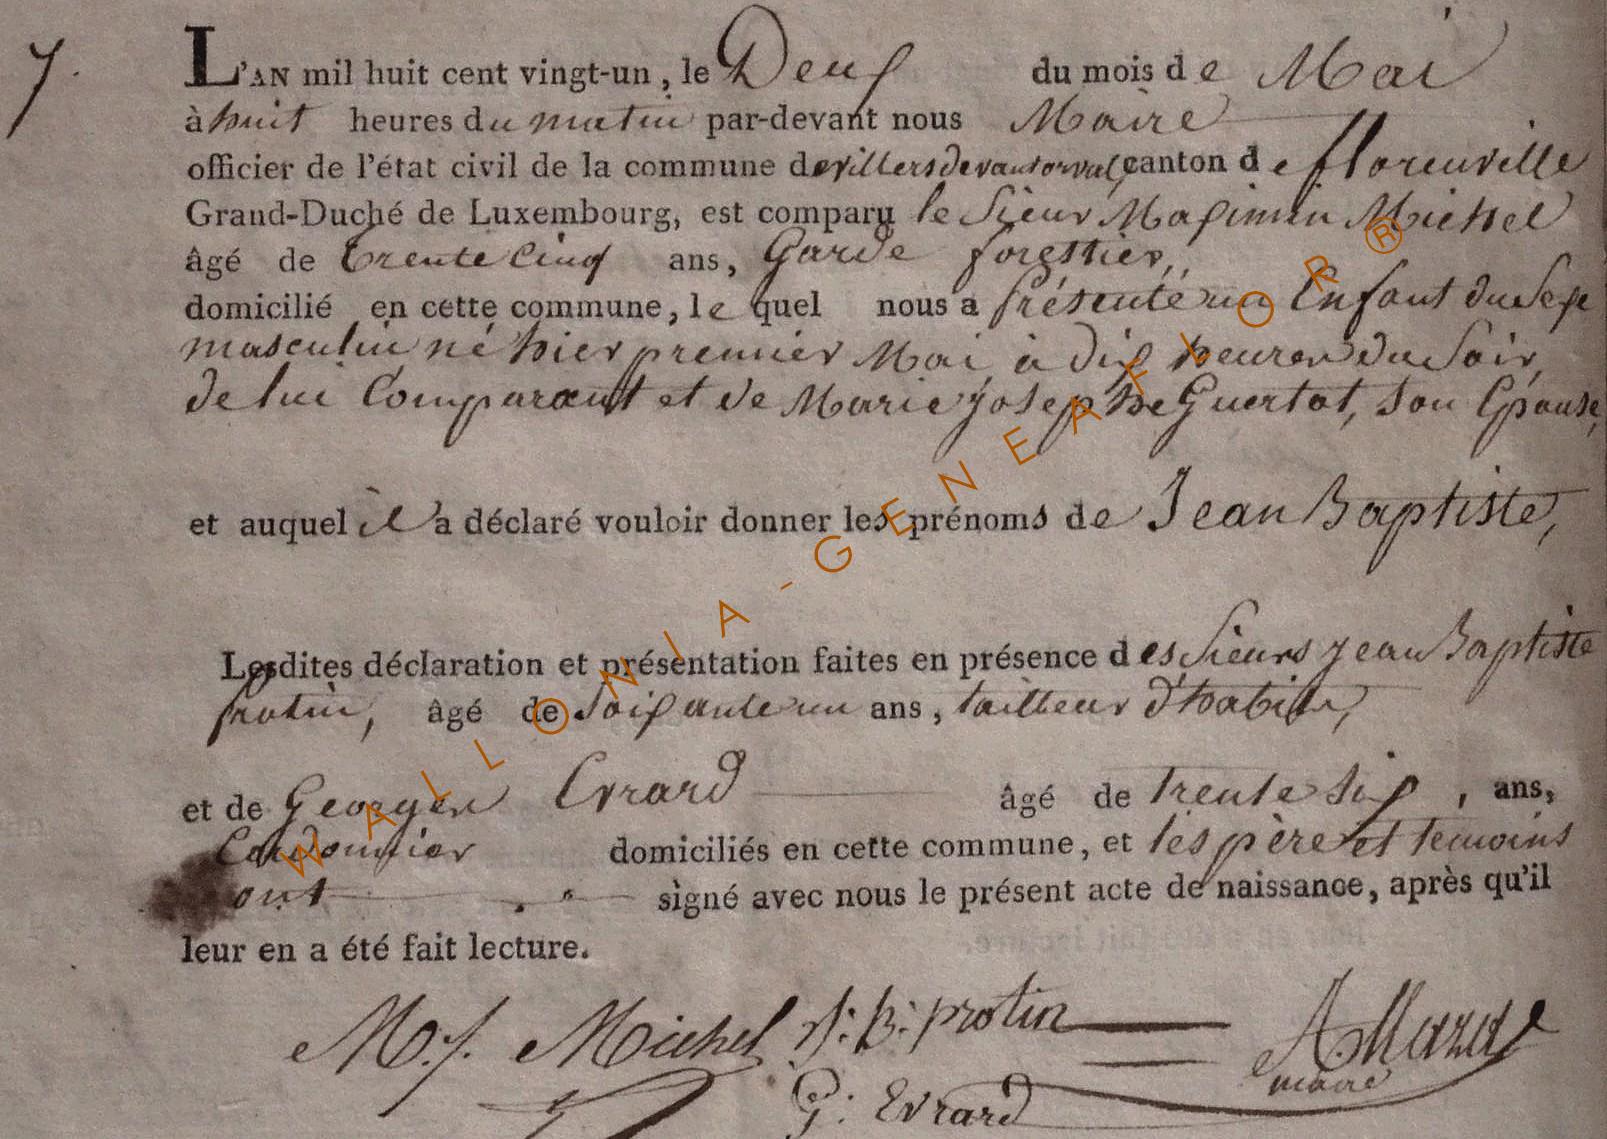 7.
L'AN mil huit cent vingt-un, le Deux du mois de Mai
à huit heures du matin par-devant nous Maire
officier de l'état civil de la commune de villersdevantorval, canton de florenville
Grand-Duché de Luxembourg, est comparu le Sieur Maximin Michel
âgé de trente cinq ans, Garde forestier,
domicilié en cette commune, le quel nous a présenté un Enfant du Sexe
masculin né hier premier Mai à dix heures du Soir,
de lui Comparant et de Marie josephe Guertot, son Epouse,
et auquel il a déclaré vouloir donner les prénoms de Jean Baptiste,
Lesdites déclaration et présentation faites en présence des Sieurs jean Baptiste
protin, âgé de Soixante un ans, tailleur d'habits,
et de Georges Evrard âgé de trente six, ans,
Cordonnier domiciliés en cette commune, et les père et temoins
ont signé avec nous le présent acte de naissance, après qu'il
leur en a été fait lecture.
M. j. Michel J: B: protin A. Mazas
maire
G: Evrard
WALLONIA-GENEAFLOR®